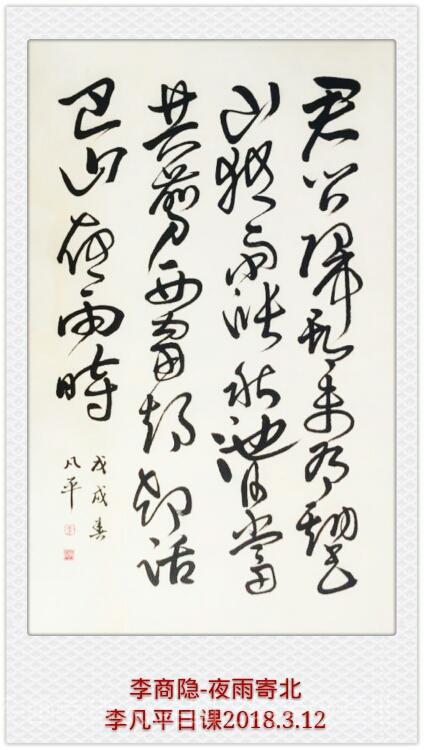 君問歸期未有期巴
山夜雨漲秋池何當
共剪西窗燭却話
巴山夜雨時
戊戌春
凡平
李商隐-夜雨寄北
李凡平日课2018.3.12